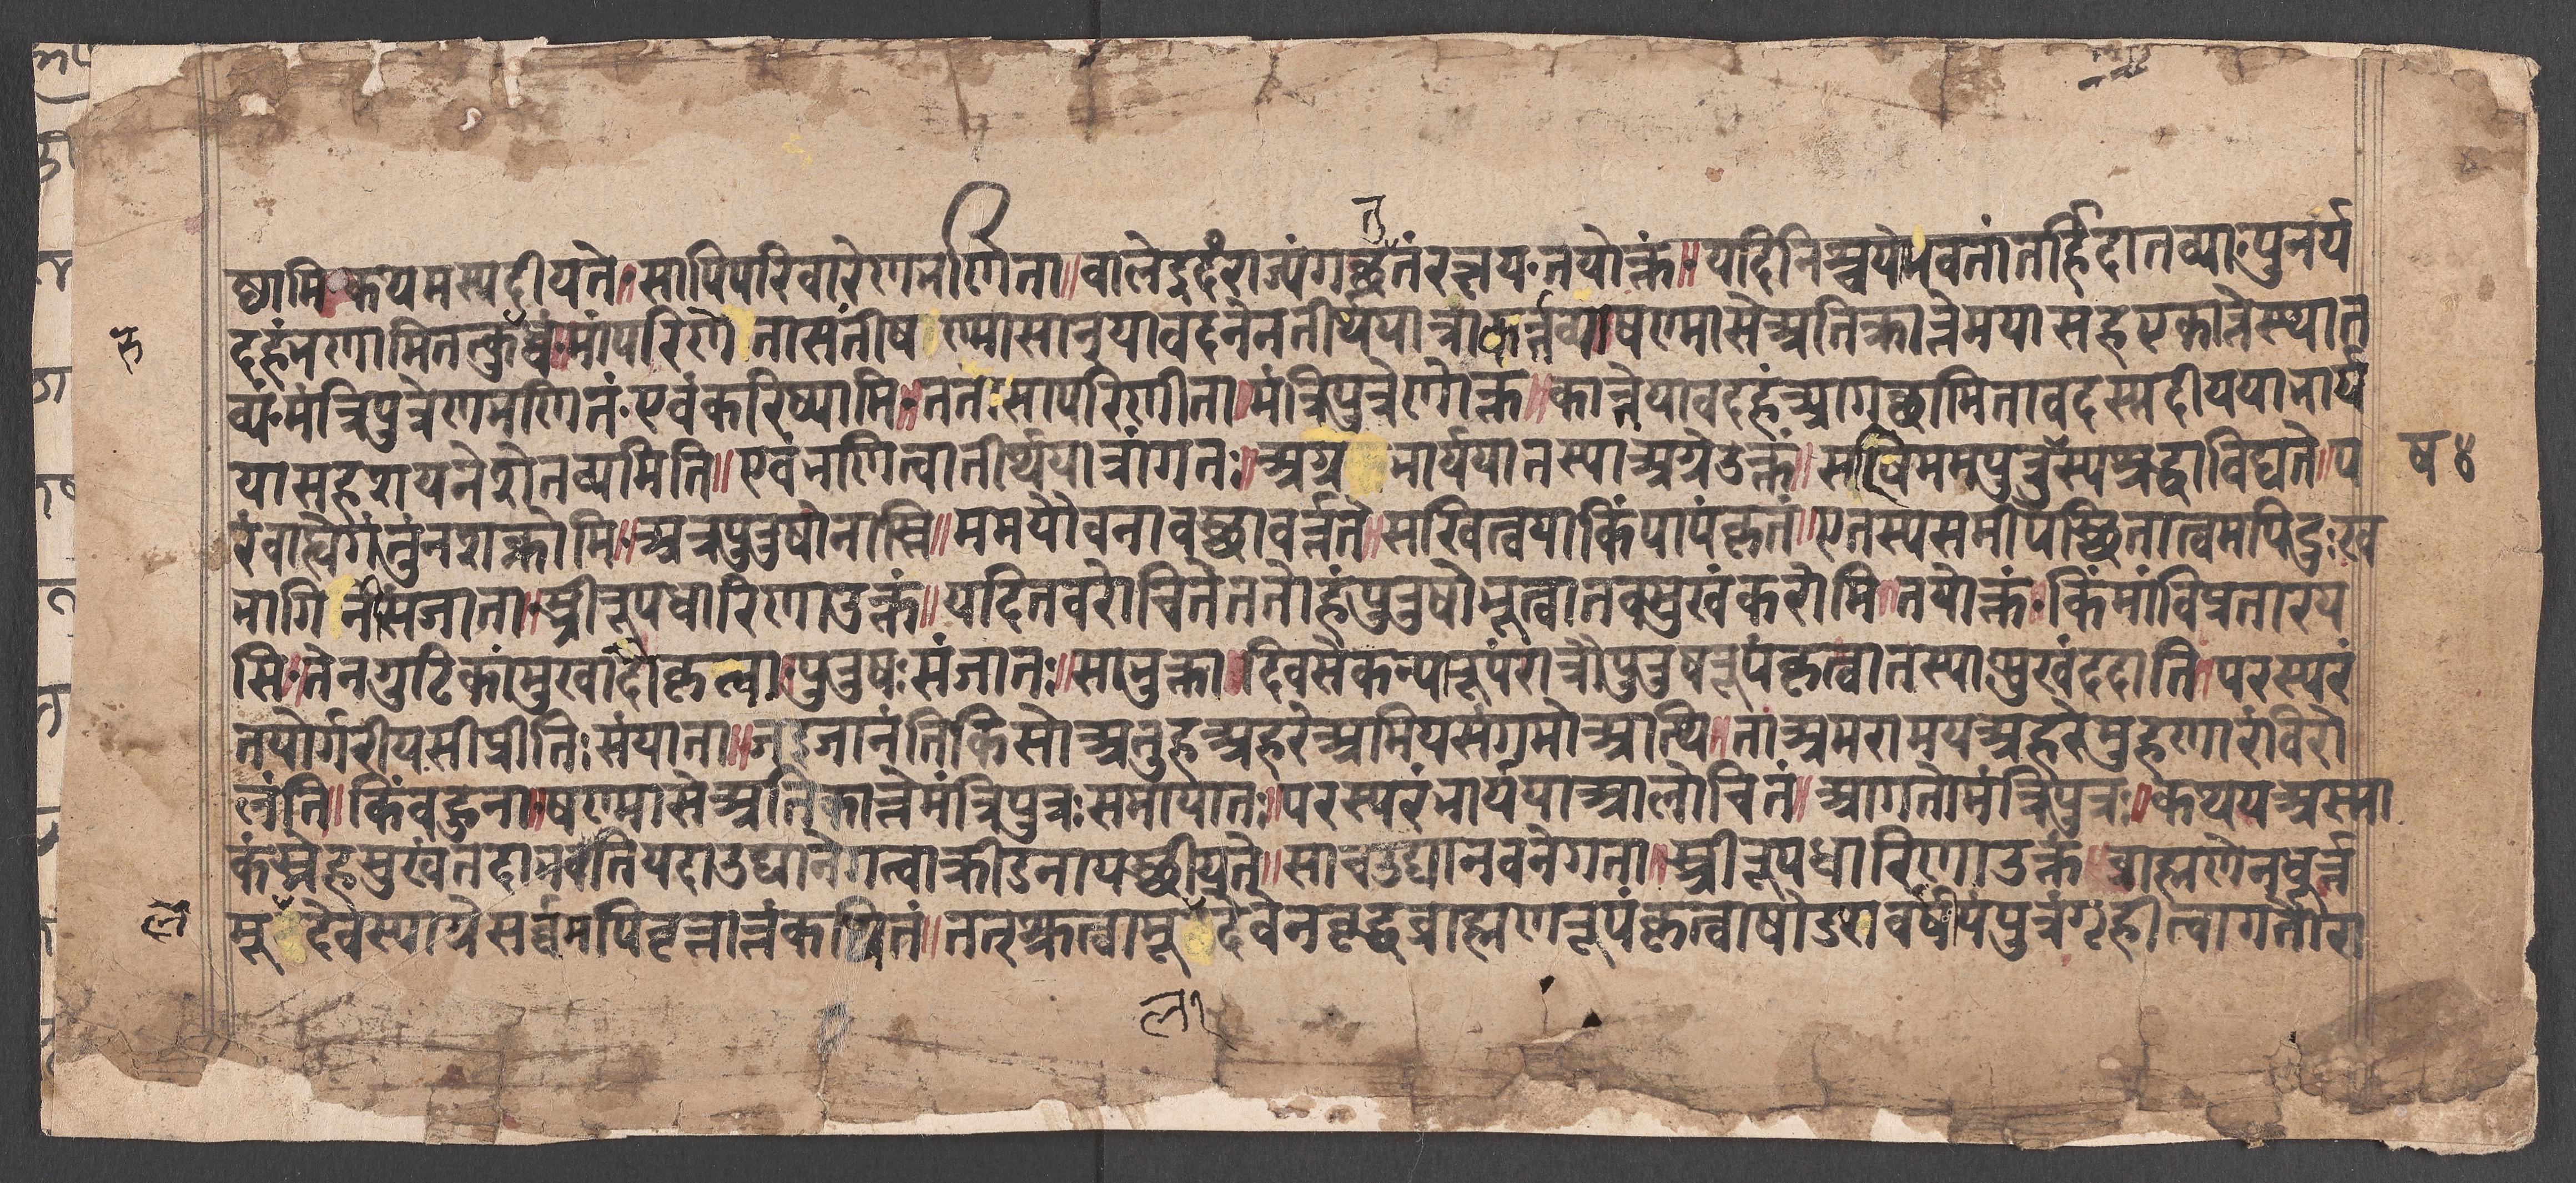 ष्यामि कथमस्य दीयते॥ सापि परिवारेण भणिता॥ बाले इदं राज्यं गच्छंतं रक्षय॰ तयोक्तं॥ यदि निश्चयो भवतां तर्हि दातव्या॰ पुनर्य
दहं भणामि तत्कुर्व्वं॰ मां परिणी तासंतीष ण्मासान् यावदनेन तीर्थयात्रा कर्त्तव्या षण्मासे अतिक्रान्ते मया सह एकान्ते स्थात
व्यं॰ मंत्रिपुत्रेण भणितं॰ एवं करिष्यामि॥ ततः सा परिणीता मंत्रिपुत्रेणोक्त॥ कान्ते यावदहं आगच्छामि तावदस्मदीयया भार्य
या सह शयने शेतव्यमिति॥ एवं भणित्वा तीर्थयात्रां गतः॥ अग्र भार्यया तस्या अग्रे उक्तं॥ सखि मम पुरुषस्य श्रद्धा विद्यते॥ प
रं बाह्ये गंतुं न शक्नोमि॥ अत्र पुरुषो नास्ति॥ मम यौवनावस्था वर्त्तते॥ सखि त्वया किं पापं कृतं॥ एतस्य समीपस्थिता त्वमपि दुःख
भागिनी संजाता॥ स्त्रीरूपधारिणा उक्तं॥ यदि तव रोचते ततोहं पुरुषो भूत्वा तव सुखं करोमि॥ तयोक्तं॰ किं मां विप्रतारय
सि॥ तेन गुटिकां मुखाद्दौ कृत्वा॰ पुरुषः संजातः॥ सा भुक्ता॥ दिवसे कन्यारूपं रात्रौ पुरुषरूपं कृत्वा तस्या सुखं ददाति॥ परस्परं
तयोर्गरीयसी प्रीतिः संयाता॥ जइ जानंति कि सो अतुह अहरे अमिय संगमो आत्थि॥ ता अमरा मय अहरे मुहणारं विरो
लंति॥ किं बहुना॥ षण्मासे अतिक्रान्ते मंत्रिपुत्रः समायातः॥ परस्परं भार्यया आलोचितं॥ आगतो मंत्रिपुत्रः॥ कथय अस्मा
कं स्नेहसुखं तदा भवति यदा उद्याने गत्वा क्रीडनाय स्थीयते॥ सा च उद्यानवने गता॥ स्त्रीरूपधारिणा उक्तं॥ ब्राह्मणेन धूर्त्त
मू देवस्याग्रे सर्व्वमपि वृत्तान्तं कथितं॥ तत् श्रुत्वा मू देवेन वृद्धब्राह्मणरूपं कृत्वा षोडशवर्षीयं पुत्रं गृहीत्वा गतो रा